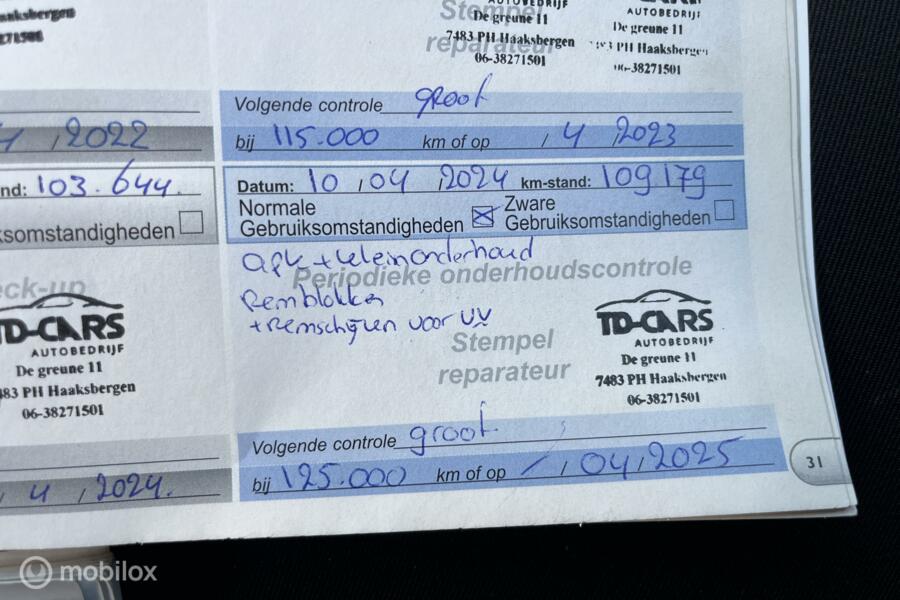 Haaksbergen
AUTOBEDRIJF
De greune 11
7483 PH Haaksbergen
06-38271501
Stempel
reparateur
AUTOBEDRIJF
De greune 11
PH Haaksbergen
38271501
2022
Volgende controle groot
bij 115.000 km of op / 4 / 2023
nd: 103.644.
ksomstandigheden
Datum: 10 / 04 / 2024 km-stand: 109179
Normale
Gebruiksomstandigheden
Zware
Gebruiksomstandigheden
apk + kleinonderhoud
Periodieke onderhoudscontrole
Remblokken
+ remschijven voor VV
Stempel
reparateur
TD-CARS
AUTOBEDRIJF
De greune 11
7483 PH Haaksbergen
06-38271501
eck-up
TD-CARS
AUTOBEDRIJF
De greune 11
483 PH Haaksbergen
06-38271501
Volgende controle groot
bij 125.000 km of op / / 04 / 2025
/ 4 / 2024.
31
mobilox